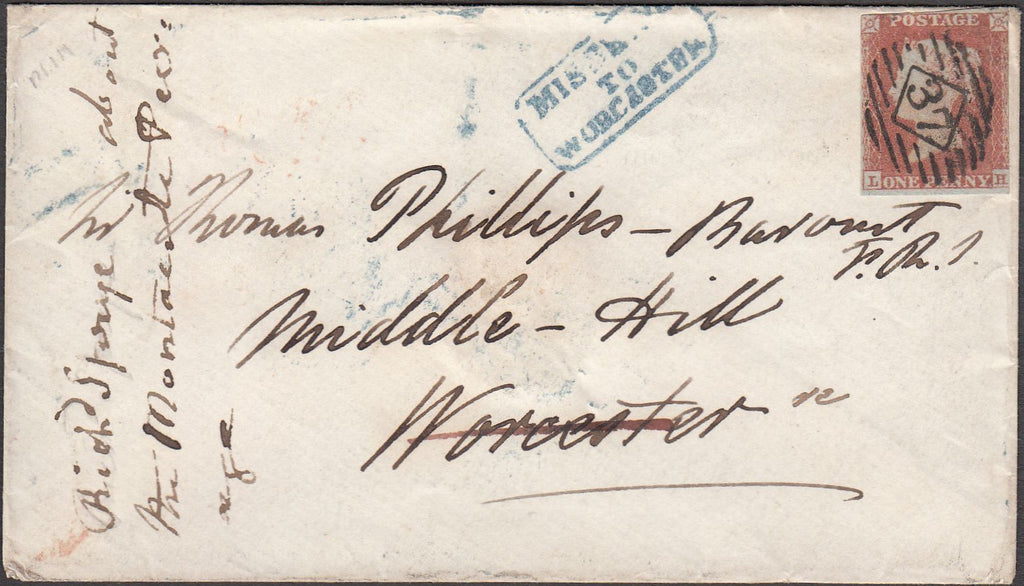 POSTAGE
37
L ONE PENNY H
TO
WORCESTER
Sir Thomas Phillips - Baronet
F. R. S.
Middle - Hill
Worcester
Richd Sponge about
the Montacute Peer:
age